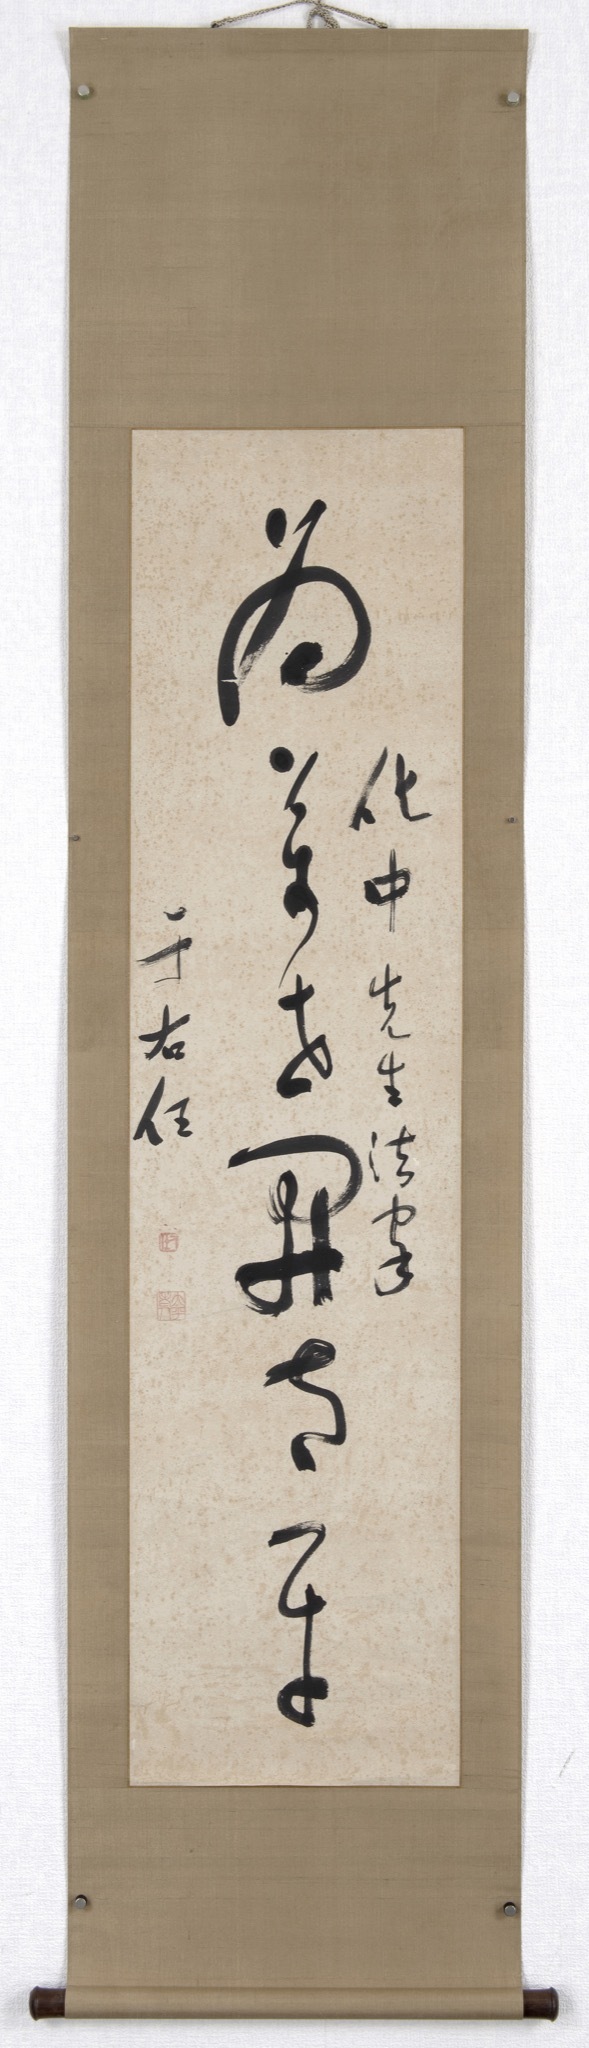 化中先生法家
為萬世開太平
于右任